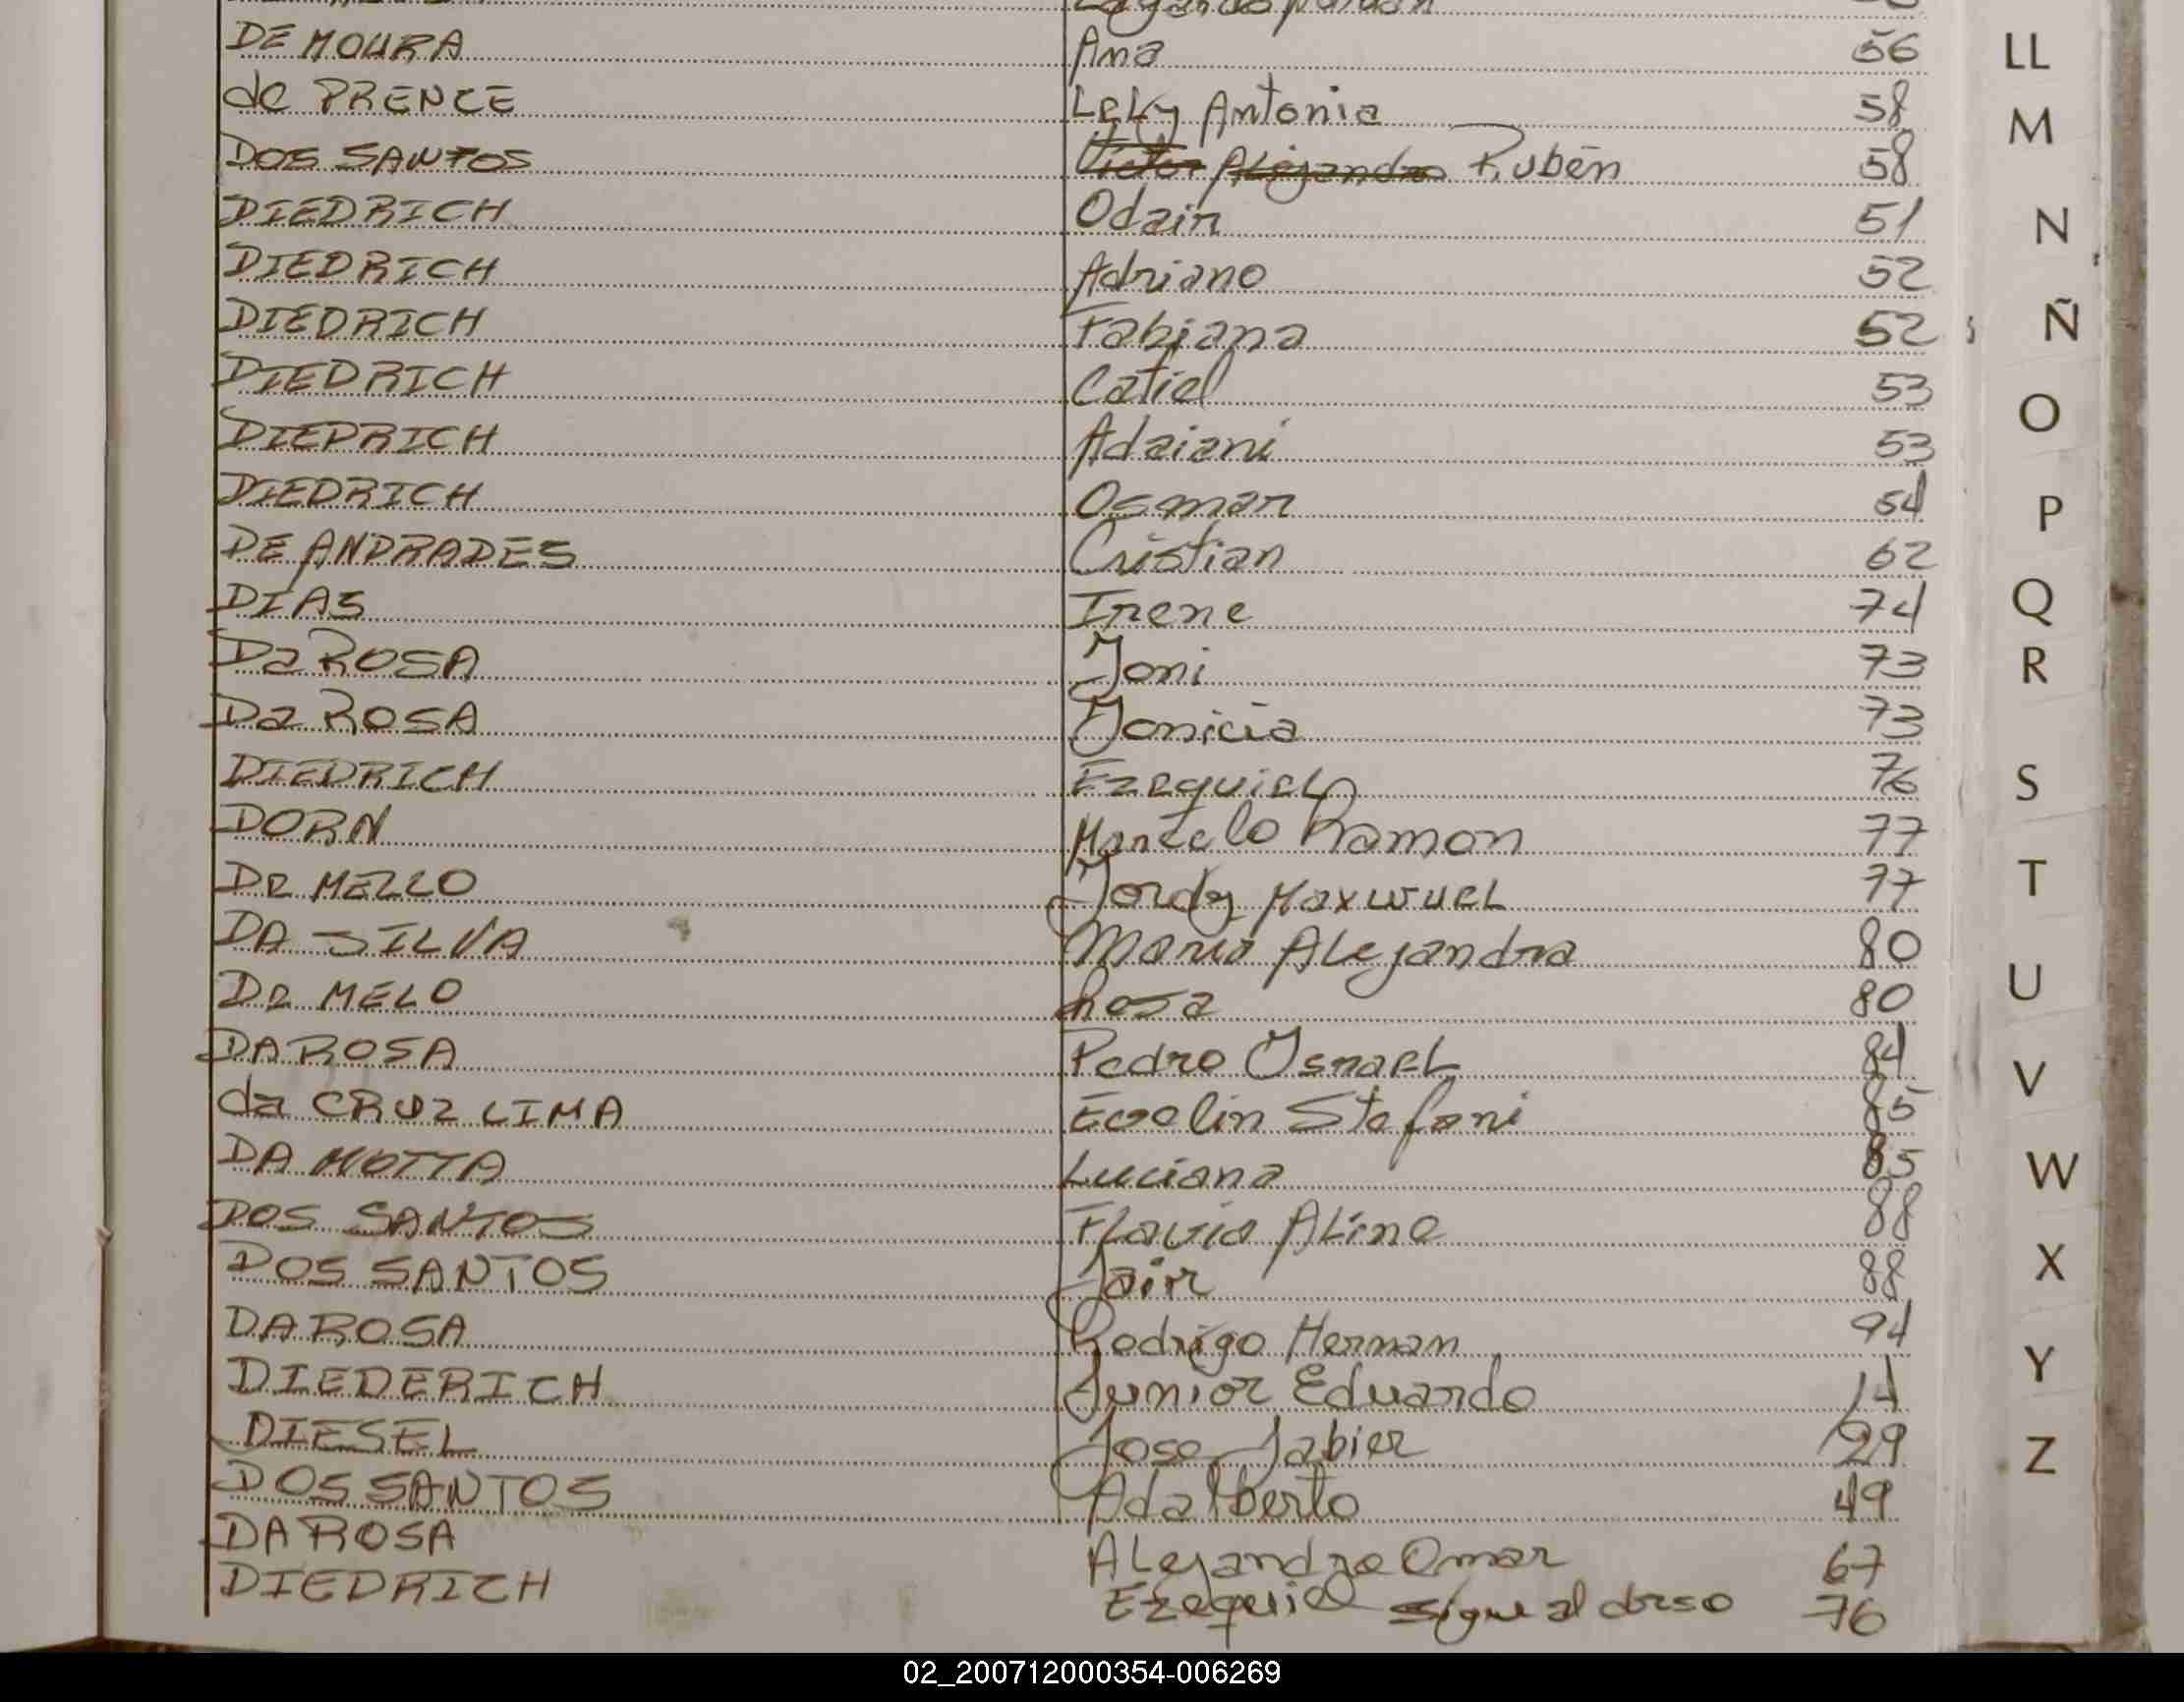 DE MOURA Ana 56
de PRENCE LELY Antonia 58
DOS SANTOS Victor Alejandro Rubén 58
DIEDRICH Odair 51
DIEDRICH Adriano 52
DIEDRICH Fabiana 52
DIEDRICH Catiel 53
DIEDRICH Adaiani 53
DIEDRICH Osmar 54
DE ANDRADES Cristian 62
DIAS Irene 74
Da ROSA Joni 73
Da ROSA Jonicia 73
DIEDRICH EzequieL 76
DORN Marcelo Ramon 77
De MELLO Jordy MaxwueL 77
DA SILVA Maria ALejandra 80
De MELO Rosa 80
DA ROSA Pedro IsraeL 84
da CRUZ LIMA Evelin Stefani 85
DA MOTTA Luciana 85
DOS SANTOS FLavia ALine 88
DOS SANTOS Jair 88
DA ROSA Rodrigo Hernan 94
DIEDERICH Junior Eduardo 14
DIESEL Jose Jabier 29
DOS SANTOS Adalberto 49
DA ROSA ALejandro Omar 67
DIEDRICH Ezequiel sigue al dorso 76
LL
M
N
Ñ
O
P
Q
R
S
T
U
V
W
X
Y
Z
02_200712000354-006269